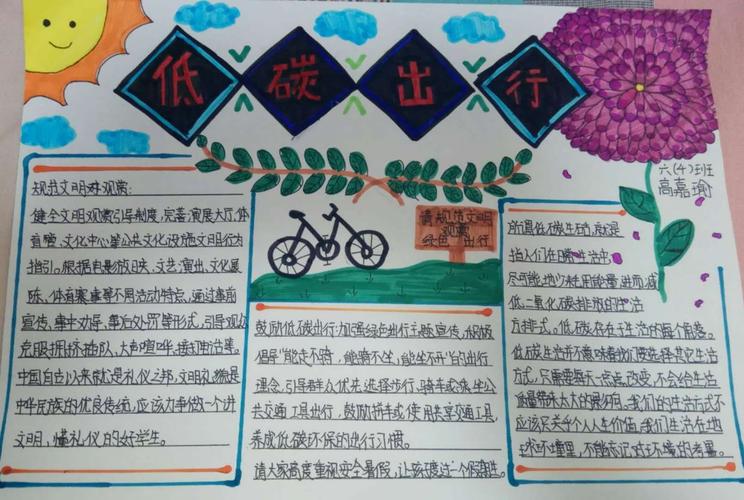 低碳出行
六(4)班
高嘉瑜
规范文明林观赏:
健全文明观赏引导制度,完善演展大厅、体
育馆、文化中心等公共文化设施文明行为
指引。根据电影放映、文艺演出、文化展
陈、体育赛事等不同活动特点,通过事前
宣传、事中劝导、事后处罚等形式,引导观众
克服拥挤插队、大声喧哗、接打电话等。
中国自古以来就是礼仪之邦,文明礼貌是
中华民族的优良传统,应该力争做一个讲
文明,懂礼仪的好学生。
请规范文明
观赏
绿色出行
鼓励低碳出行:加强绿色出行主题宣传,积极
倡导"能走不骑,能骑不坐,能坐不开"的出行
理念,引导群众优先选择步行、骑车或乘坐公
共交通工具出行,鼓励拼车或使用共享交通工具,
养成低碳环保的出行习惯。
请大家高度重视安全暑假,让孩子度过一个
所谓低碳生活,就是
指人们在日常生活中
尽可能地少耗用能量,进而减
低二氧化碳排放的生活
方式。低碳存在于生活的每个角落。
低碳生活并不意味着我们要选择其它生活
方式,只需要每天一点点改变,不会给生活
质量带来太大的影响。我们的生活方式不
应该只关乎个人人生价值,我们生活在地
球环境里,不能忘记对环境的考量。